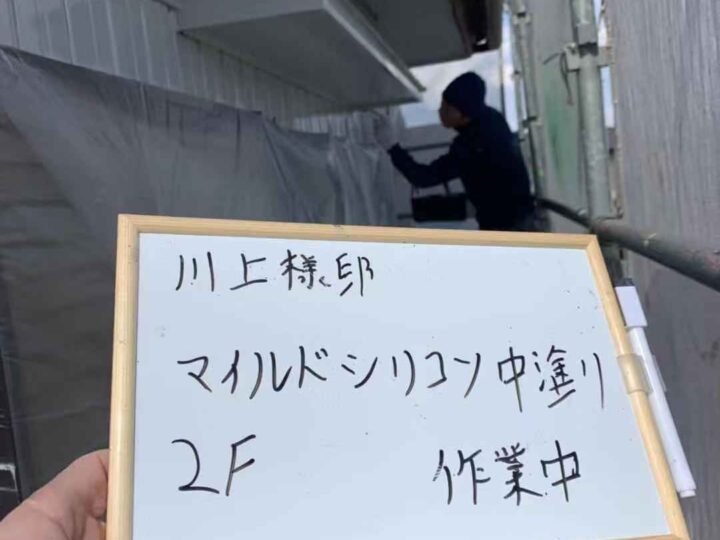 川上様邸
マイルドシリコン中塗り
2F 作業中